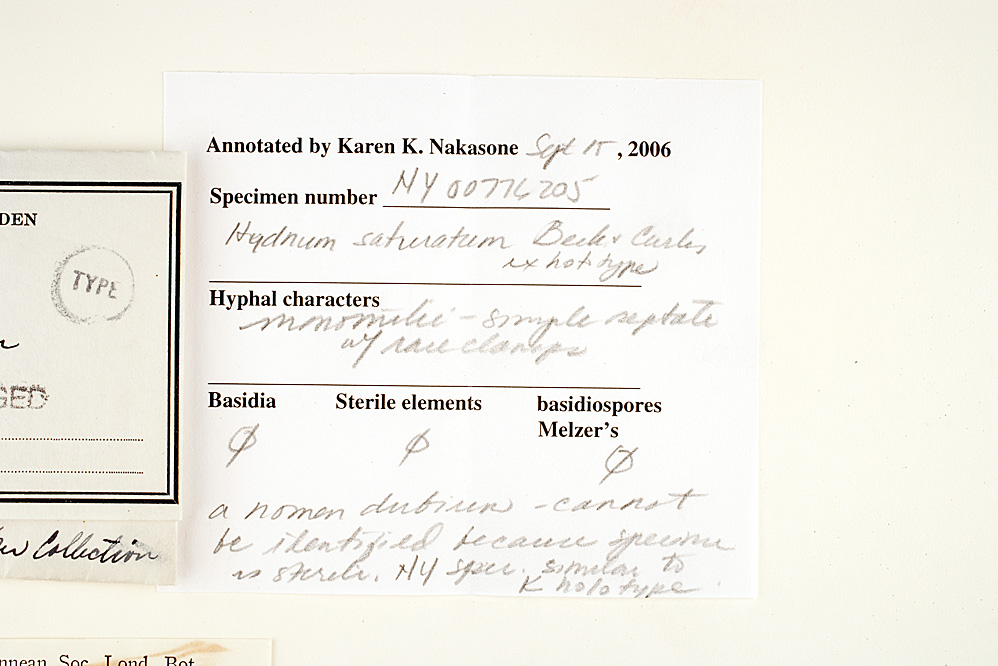 Annotated by Karen K. Nakasone Sept 15, 2006
Specimen number NY 00776205
Hydnum saturatum Berk & Curtis
ex holotype
Hyphal characters
monomitic - simple septate
w/ rare clamps
Basidia Sterile elements basidiospores
Melzer's
Ø Ø Ø
a nomen dubium - cannot
be identified because specimen
is sterile. NY spec. similar to
K holotype
DEN
TYPE
GED
Collection
nnean Soc. Lond. Bot.